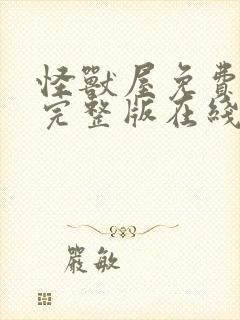 怪獸屋免費
完整版在綫
嚴敏